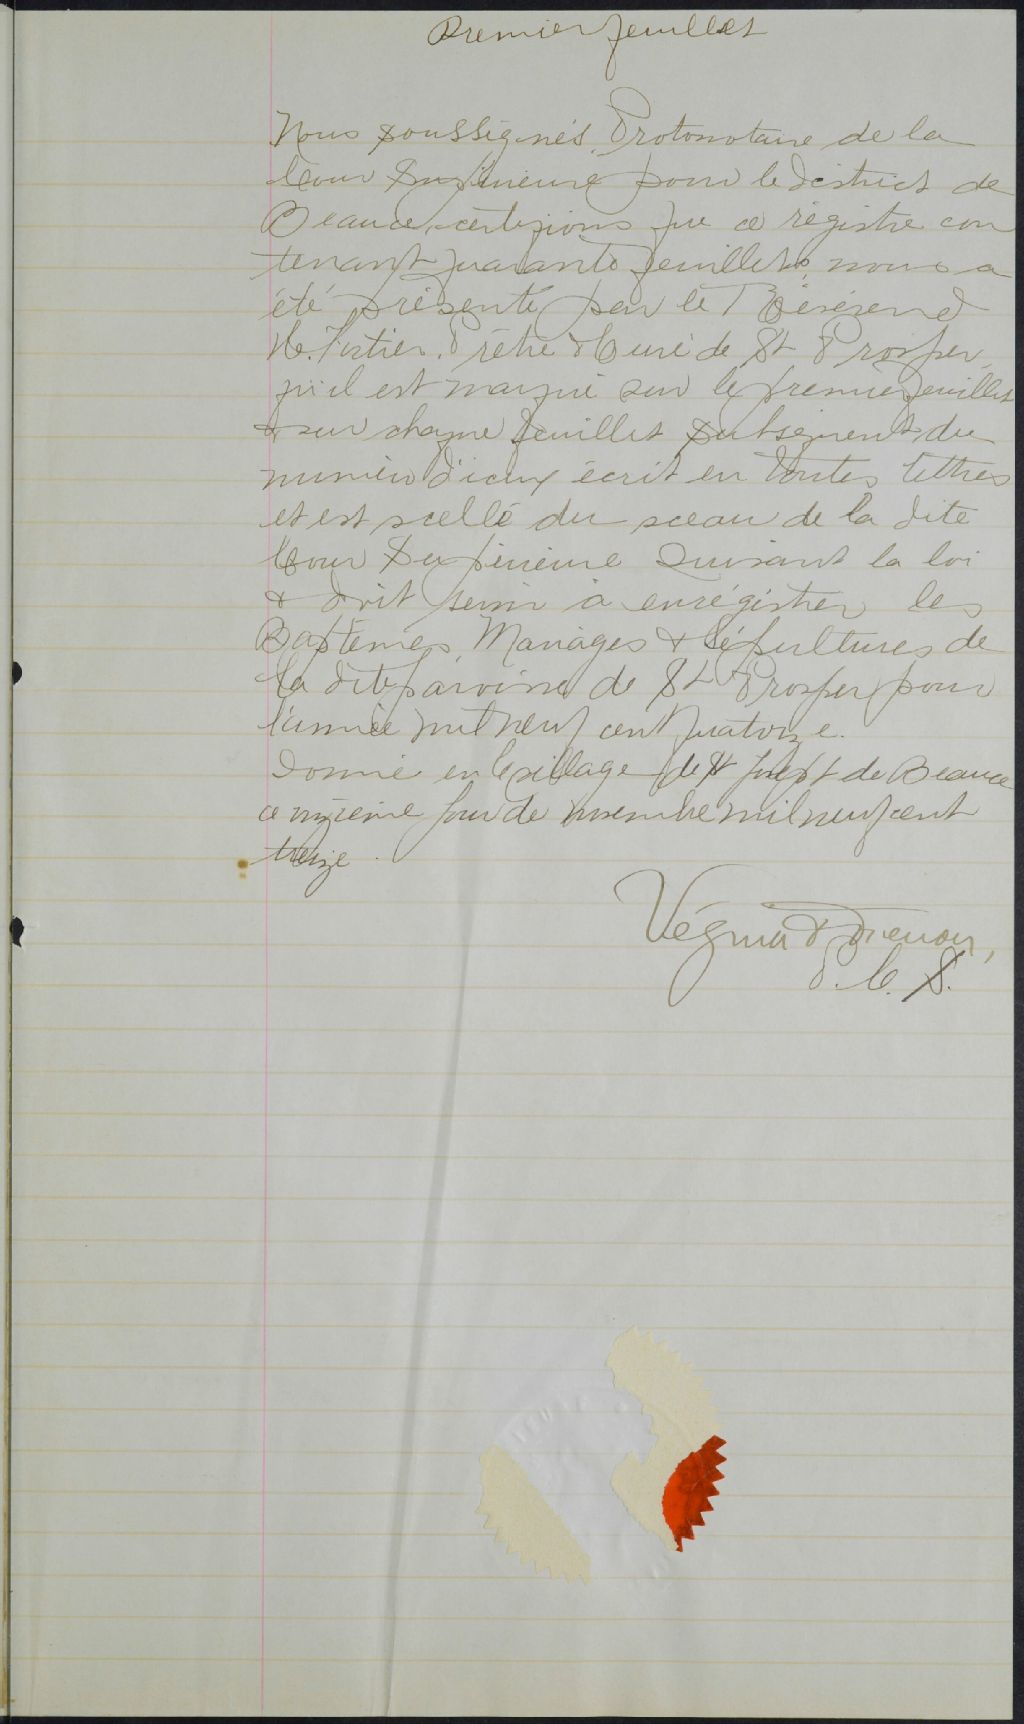 Premier feuillet
Nous soussignés, Protonotaire de la
Cour Supérieure pour le district de
Beauce, certifions que ce régistre con
tenant quarante feuillets, nous a
été présenté par le Révérend
Fortier, Prêtre & Curé de St Prosper,
qu'il est marqué sur le premier feuillet
& sur chaque feuillet subséquent du
numéro d'iceux écrit en toutes lettres
et est scellé du sceau de la dite
Cour Supérieure Suivant la loi
& doit servir à enrégistrer les
Baptêmes, Mariages & Sépultures de
la dite paroisse de St Prosper pour
l'année mil neuf cent quatorze.
Donné en le village de St Joseph de Beauce
ce onzième jour de novembre mil neuf cent
treize.
Vézina &
P. C. S.